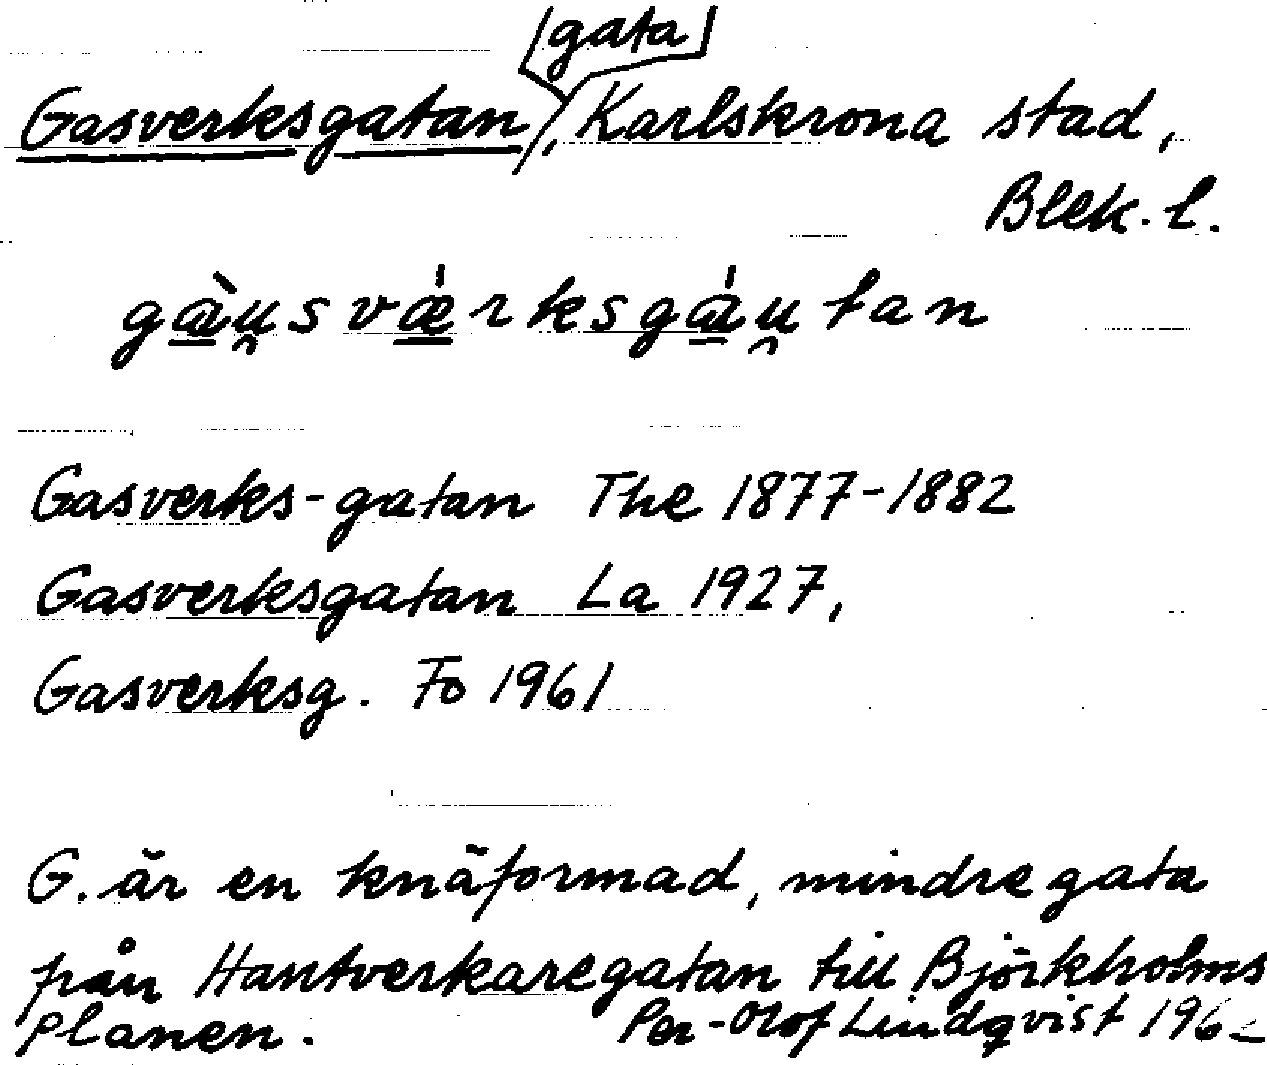 gata
Gasverksgatan, Karlskrona stad,
Blek. l.
gàu̯sværksgáu̯tan
Gasverks-gatan The 1877-1882
Gasverksgatan La 1927,
Gasverksg. Fo 1961
G. är en knäformad, mindre gata
från Hantverkaregatan till Björkholms
planen. Per-Olof Lindqvist